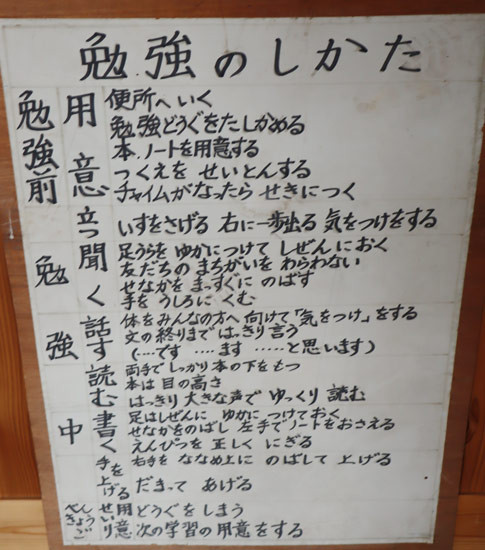 勉強のしかた
勉強前
用意
便所へいく
勉強どうぐをたしかめる
本、ノートを用意する
つくえを せいとんする
チャイムがなったら せきにつく
勉強中
立つ
いすをさげる 右に一歩出る 気をつけをする
聞く
足うらを ゆかにつけて しぜんにおく
友だちの まちがいを わらわない
せなかを まっすぐに のばす
手を うしろに くむ
話す
体をみんなの方へ向けて「気をつけ」をする
文の終りまではっきり言う
(‥‥です ‥‥ます ‥‥‥と思います)
読む
両手でしっかり本の下をもつ
本は 目の高さ
はっきり 大きな声で ゆっくり 読む
書く
足はしぜんに ゆかにつけておく
せなかをのばし 左手でノートをおさえる
えんぴつを 正しく にぎる
手を上げる
右手を ななめ上に のばして 上げる
だまって あげる
べんきょうご
せいり
どうぐを しまう
用意
次の学習の用意をする